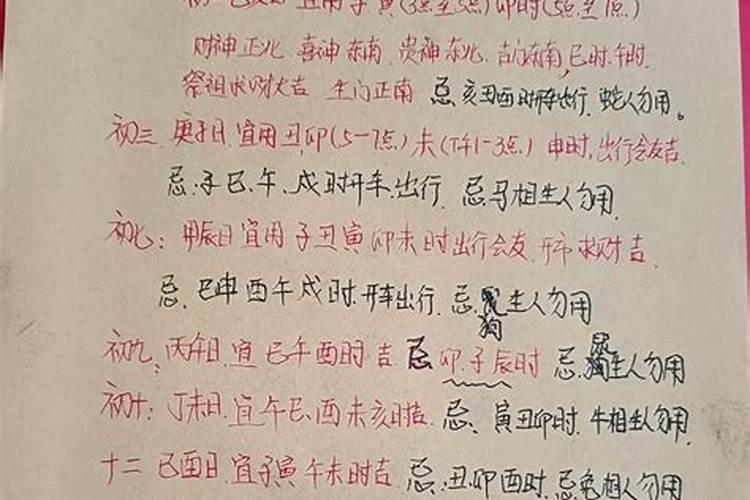 宜用子寅(3点至5点)卯时(5点至7点)
财神正北 喜神东南 贵神东北 吉门东南,巳时.午时.
祭祖求财大吉 生门正南 忌亥丑酉时开车出行 蛇人勿用。
初三 庚子日.宜用丑.卯(5-7点)未(下午1-3点.)申时,出行会友吉
忌:子巳.午、戌时开车.出行. 忌马相生人勿用.
初七:甲辰日宜用子丑寅卯未时出行会友.开市求财吉.
忌.巳申酉午戌时.开车出行.忌狗生人勿用
初九:丙午日.宜巳午酉时吉.忌卯.子辰时 忌.生人勿用
初十:丁未日.宜午巳.酉未亥时吉. 忌、寅丑卯时.牛相生人勿用.
十二 己酉日.宜子寅午未时吉.忌:丑.卯酉时.忌兔相人勿用